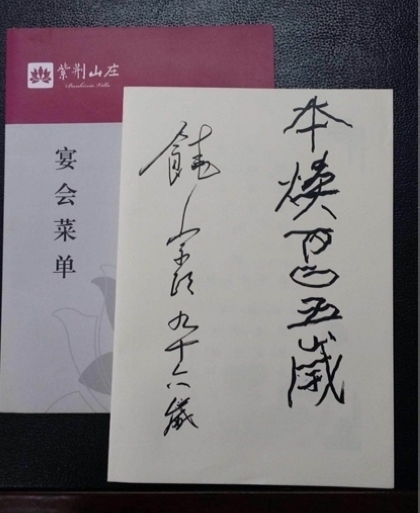 紫荆山庄
Bauhinia Villa
宴会菜单
本煥百五歲
饒宗頤九十六歲